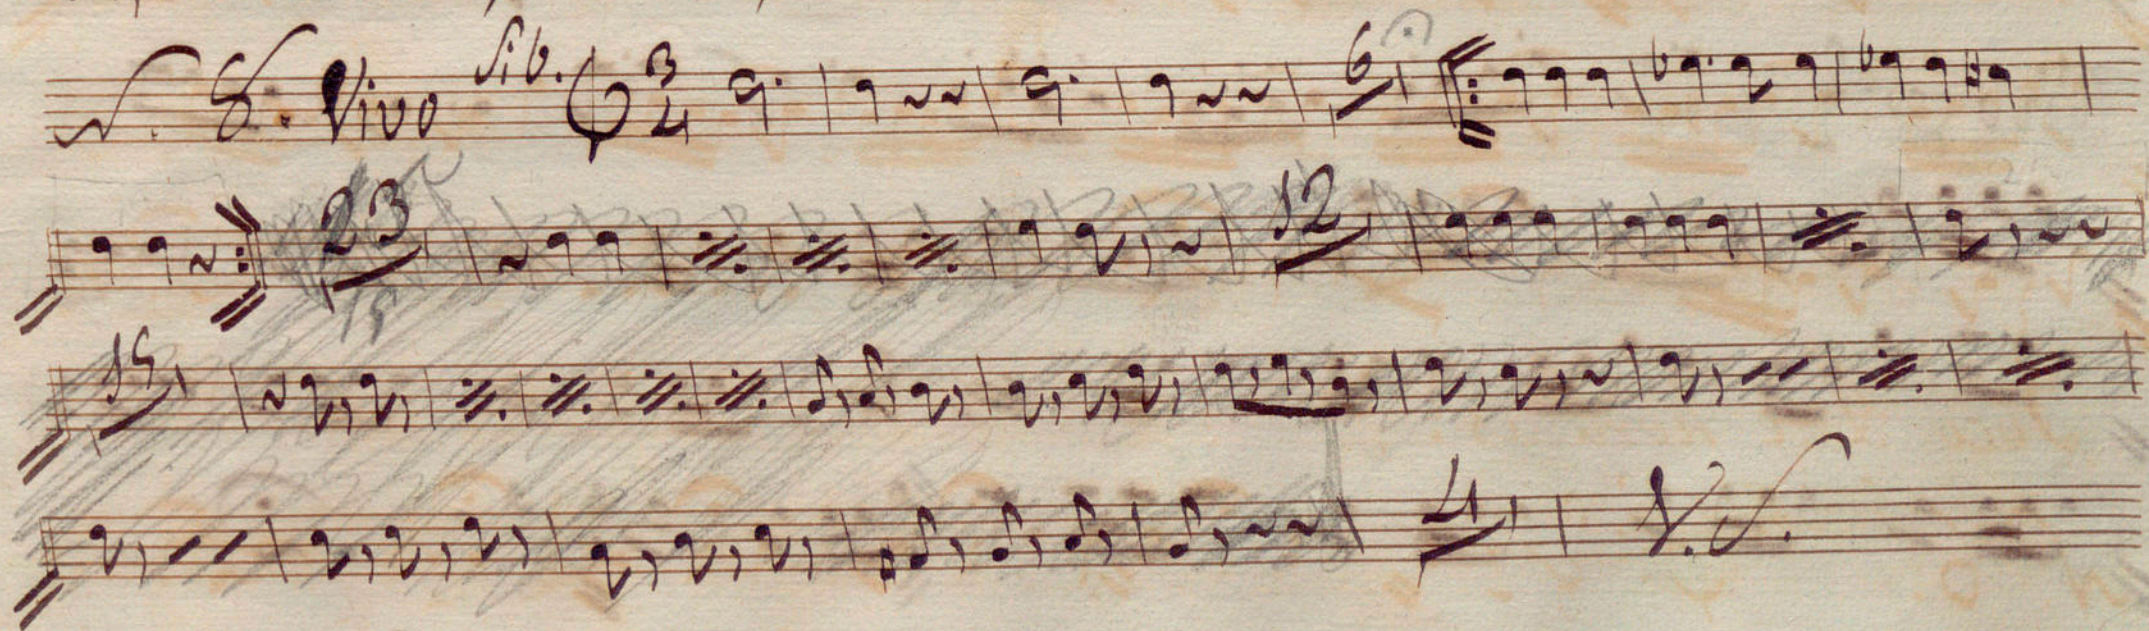 N. 8. Vivo Sib. 3 4 6
23 12
15
15
4 V. S.